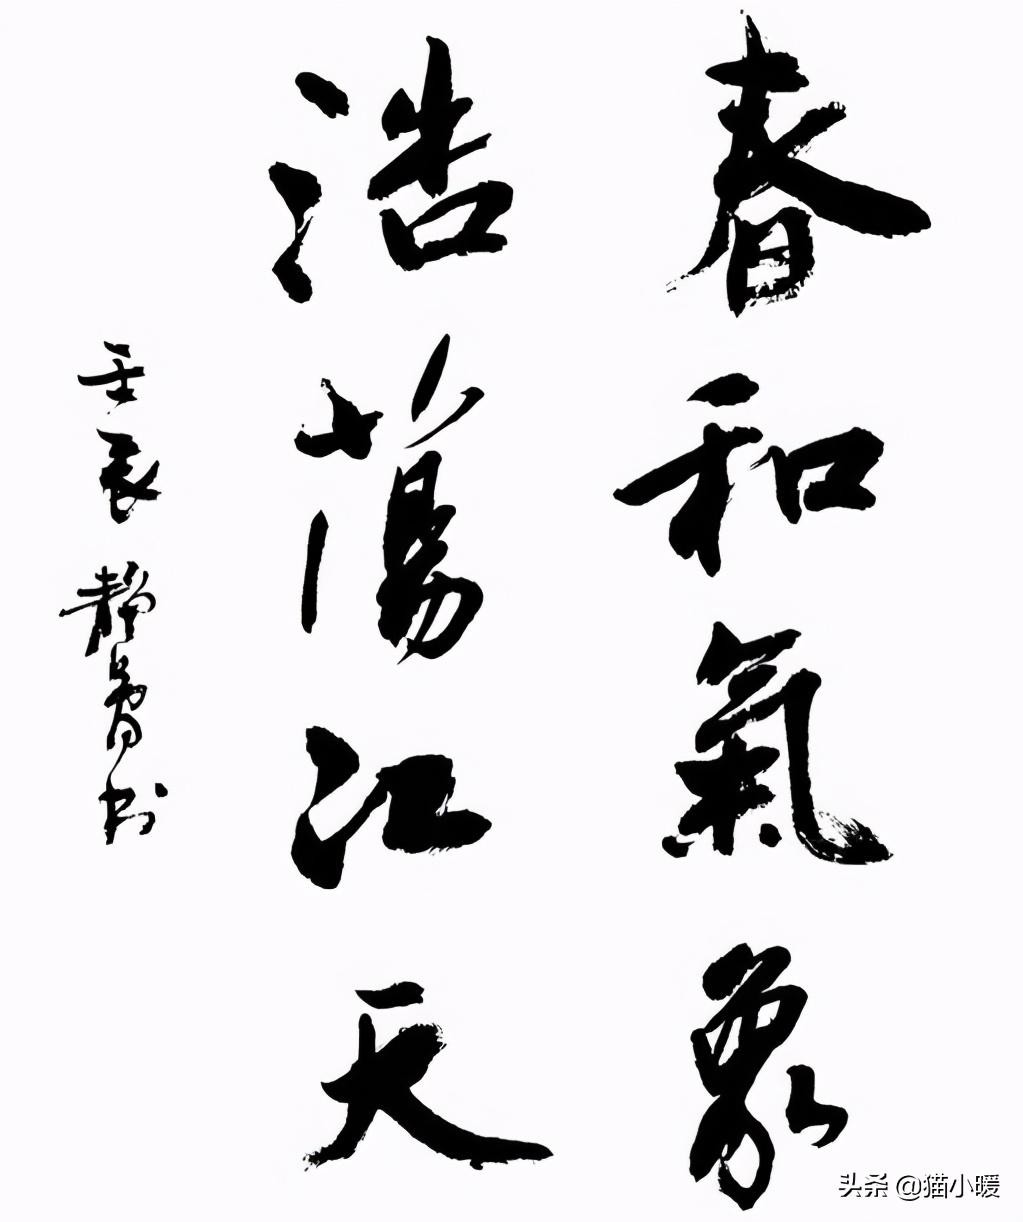 春和氣象
浩蕩江天
壬辰靜書
头条 @猫小暖